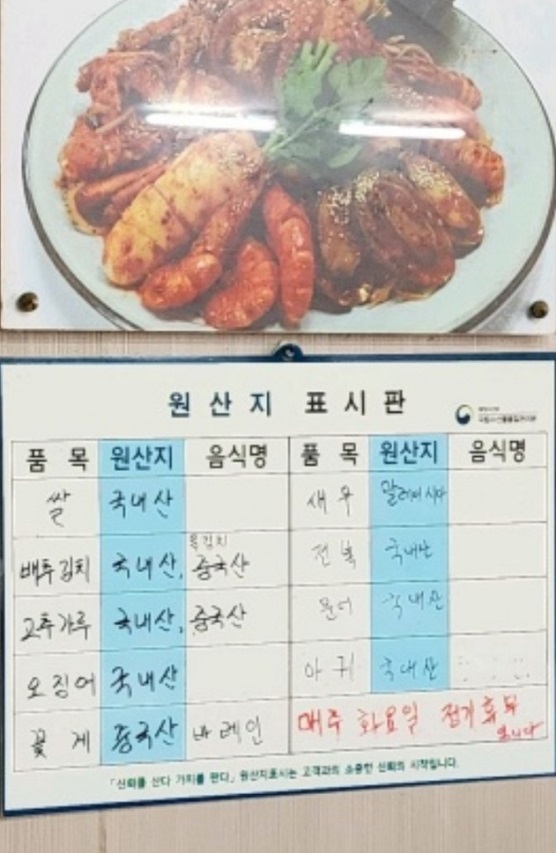 원산지 표시판
품목 원산지 음식명 품목 원산지 음식명
쌀 국내산 새우 말레이시아
배추김치 국내산, 중국산 전복 국내산
고추가루 국내산, 중국산 문어 국내산
오징어 국내산 아귀 국내산
꽃게 중국산 바레인 매주 화요일 정기휴무
입니다
「신뢰를 산다 가치를 판다」 원산지표시는 고객과의 소중한 신뢰의 시작입니다.